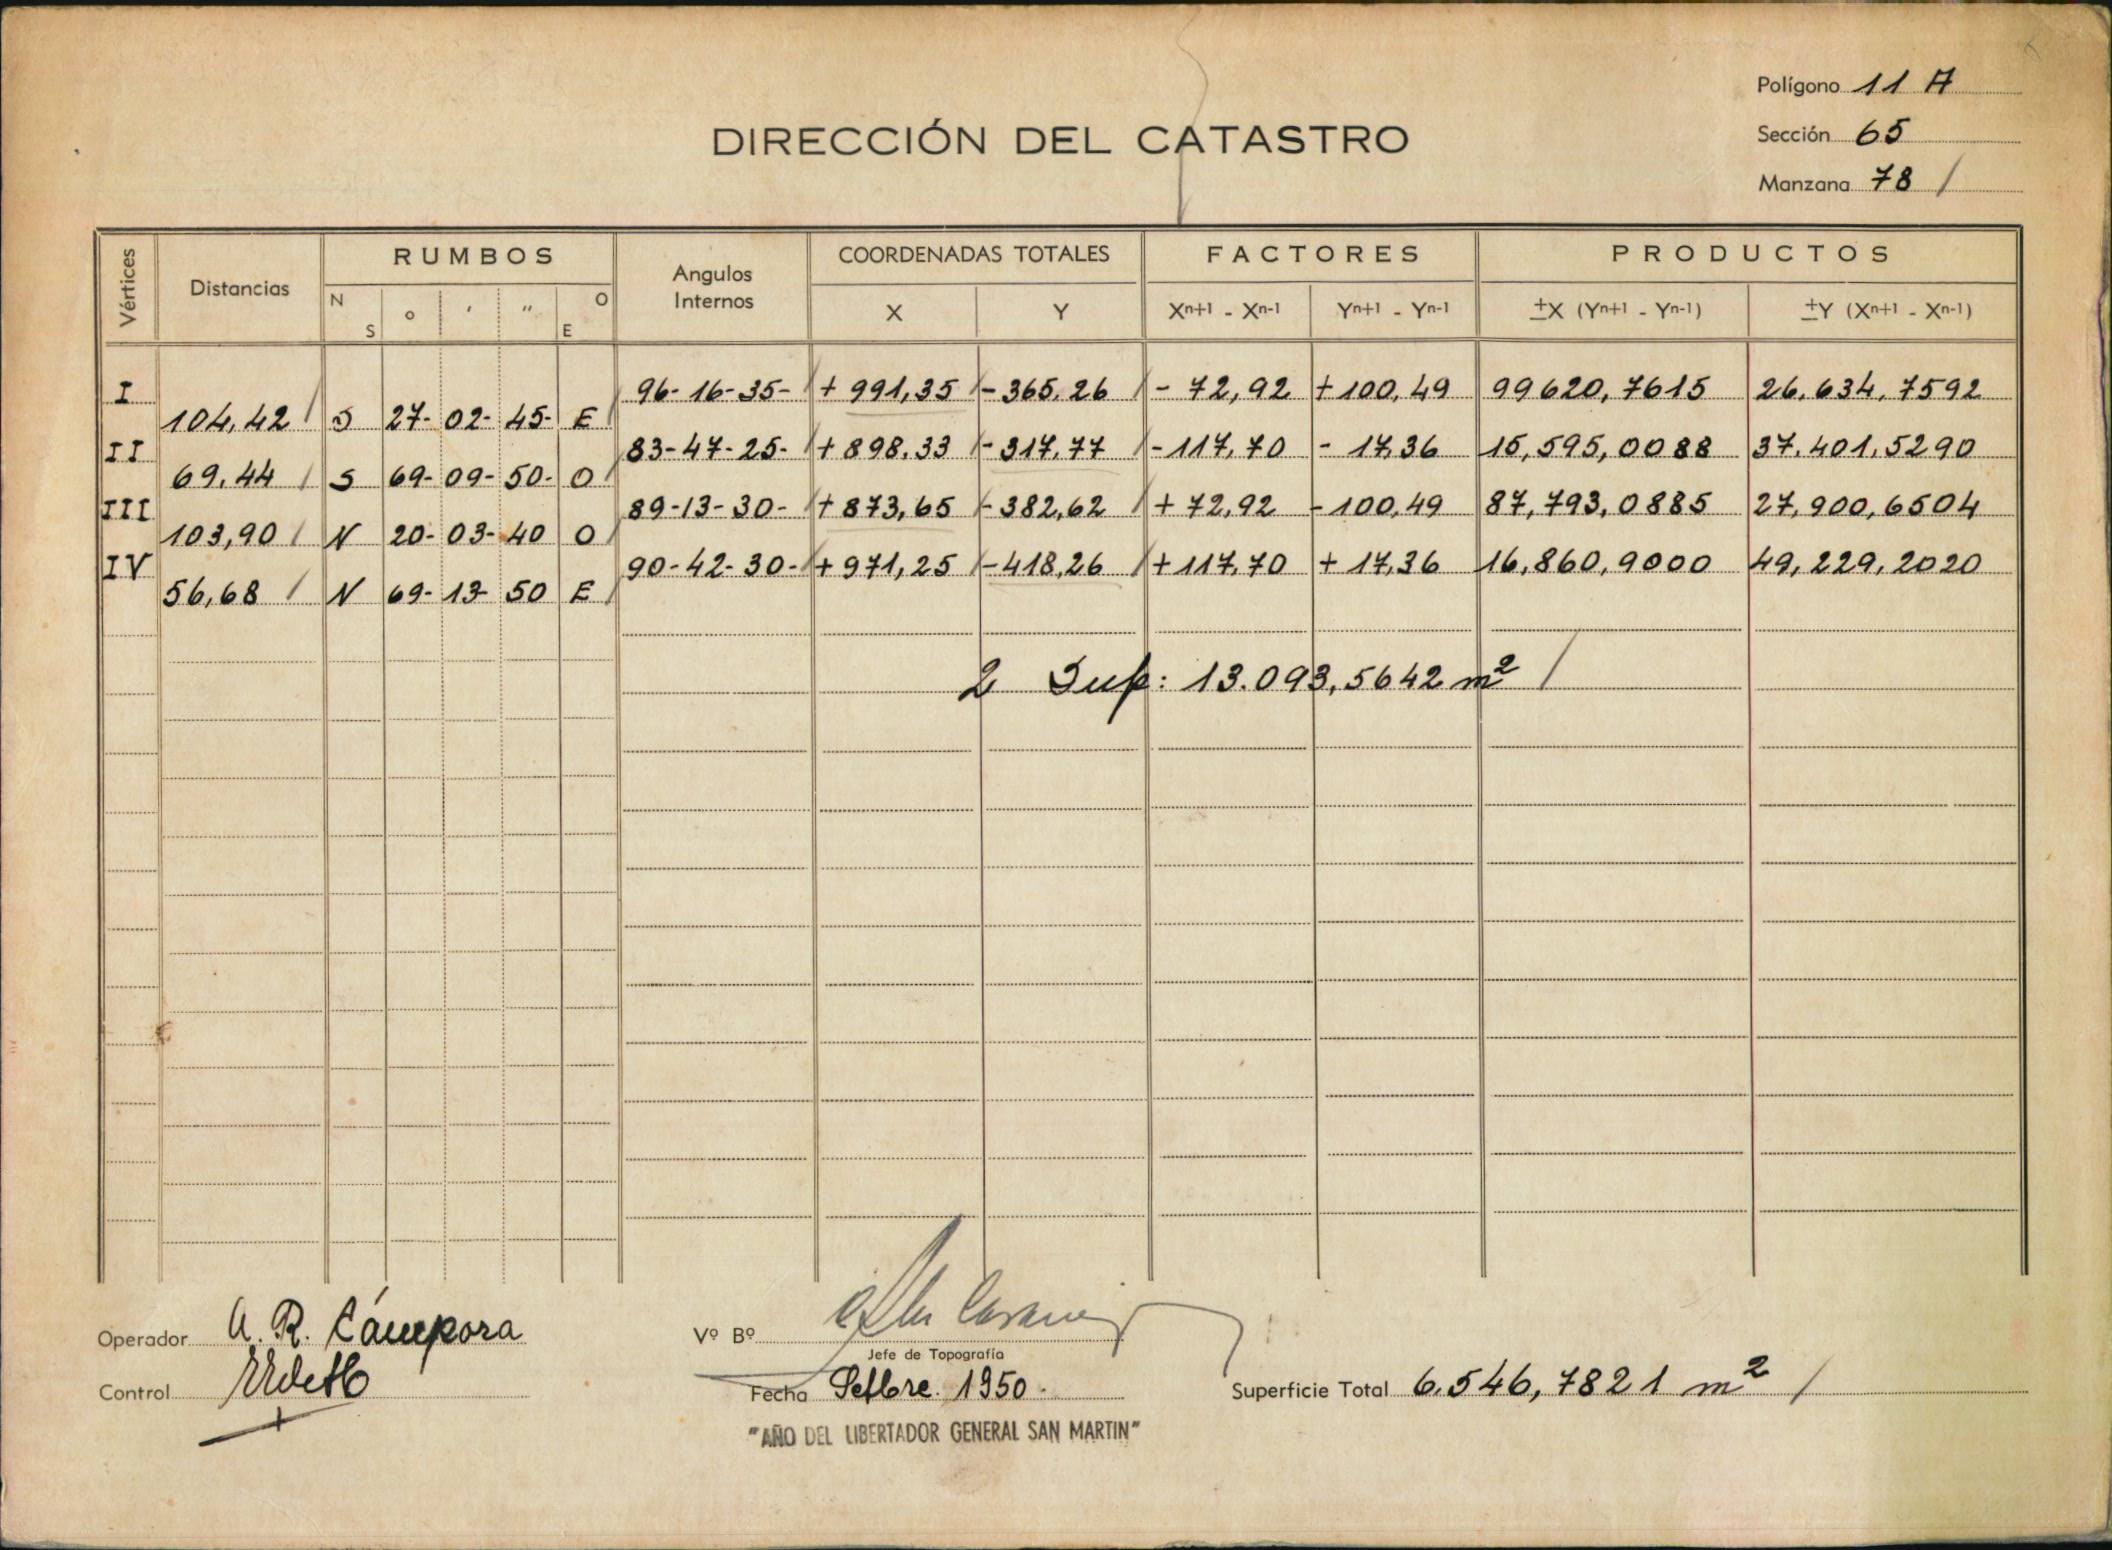 Polígono 11 A
DIRECCIÓN DEL CATASTRO
Sección 65
Manzana 78 /
Vértices Distancias RUMBOS N S o ' " O E Angulos Internos COORDENADAS TOTALES X Y FACTORES Xn+1 - Xn-1 Yn+1 - Yn-1 PRODUCTOS ±X (Yn+1 - Yn-1) ±Y (Xn+1 - Xn-1)
I 96-16-35- + 991,35 - 365,26 - 72,92 + 100,49 99620,7615 26.634,7592
104,42 S 27- 02- 45- E
II 83-47-25- + 898,33 - 317,77 - 117,70 - 17,36 15,595,0088 37.401,5290
69,44 S 69- 09- 50- O
III 89-13-30- + 873,65 - 382,62 + 72,92 - 100,49 87,793,0885 27,900,6504
103,90 N 20- 03- 40 O
IV 90-42-30- + 971,25 - 418,26 + 117,70 + 17,36 16,860,9000 49,229,2020
56,68 N 69- 13- 50 E
2 Sup: 13.093,5642 m² /
Operador A. R. Cámpora
Vº Bº
Jefe de Topografía
Control
Fecha Setbre. 1950.
Superficie Total 6.546,7821 m² /
"AÑO DEL LIBERTADOR GENERAL SAN MARTIN"